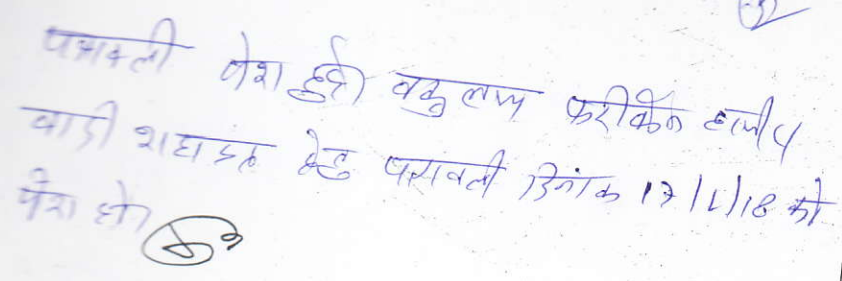 पत्रावली पेश हुई। वकुलाय फरीकेन हाजीर
वादी शहादत हेतु पत्रावली दिनांक 17/1/18 को
पेश हो।